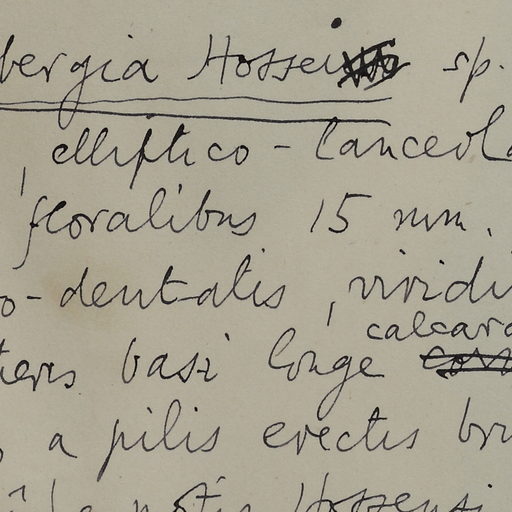 bergia Hossei sp.
, elliptico - lanceola
floralibus 15 mm.
o-dentatis, viridi
calcara
basi longe
, a pilis erectis bru
Hosseusi